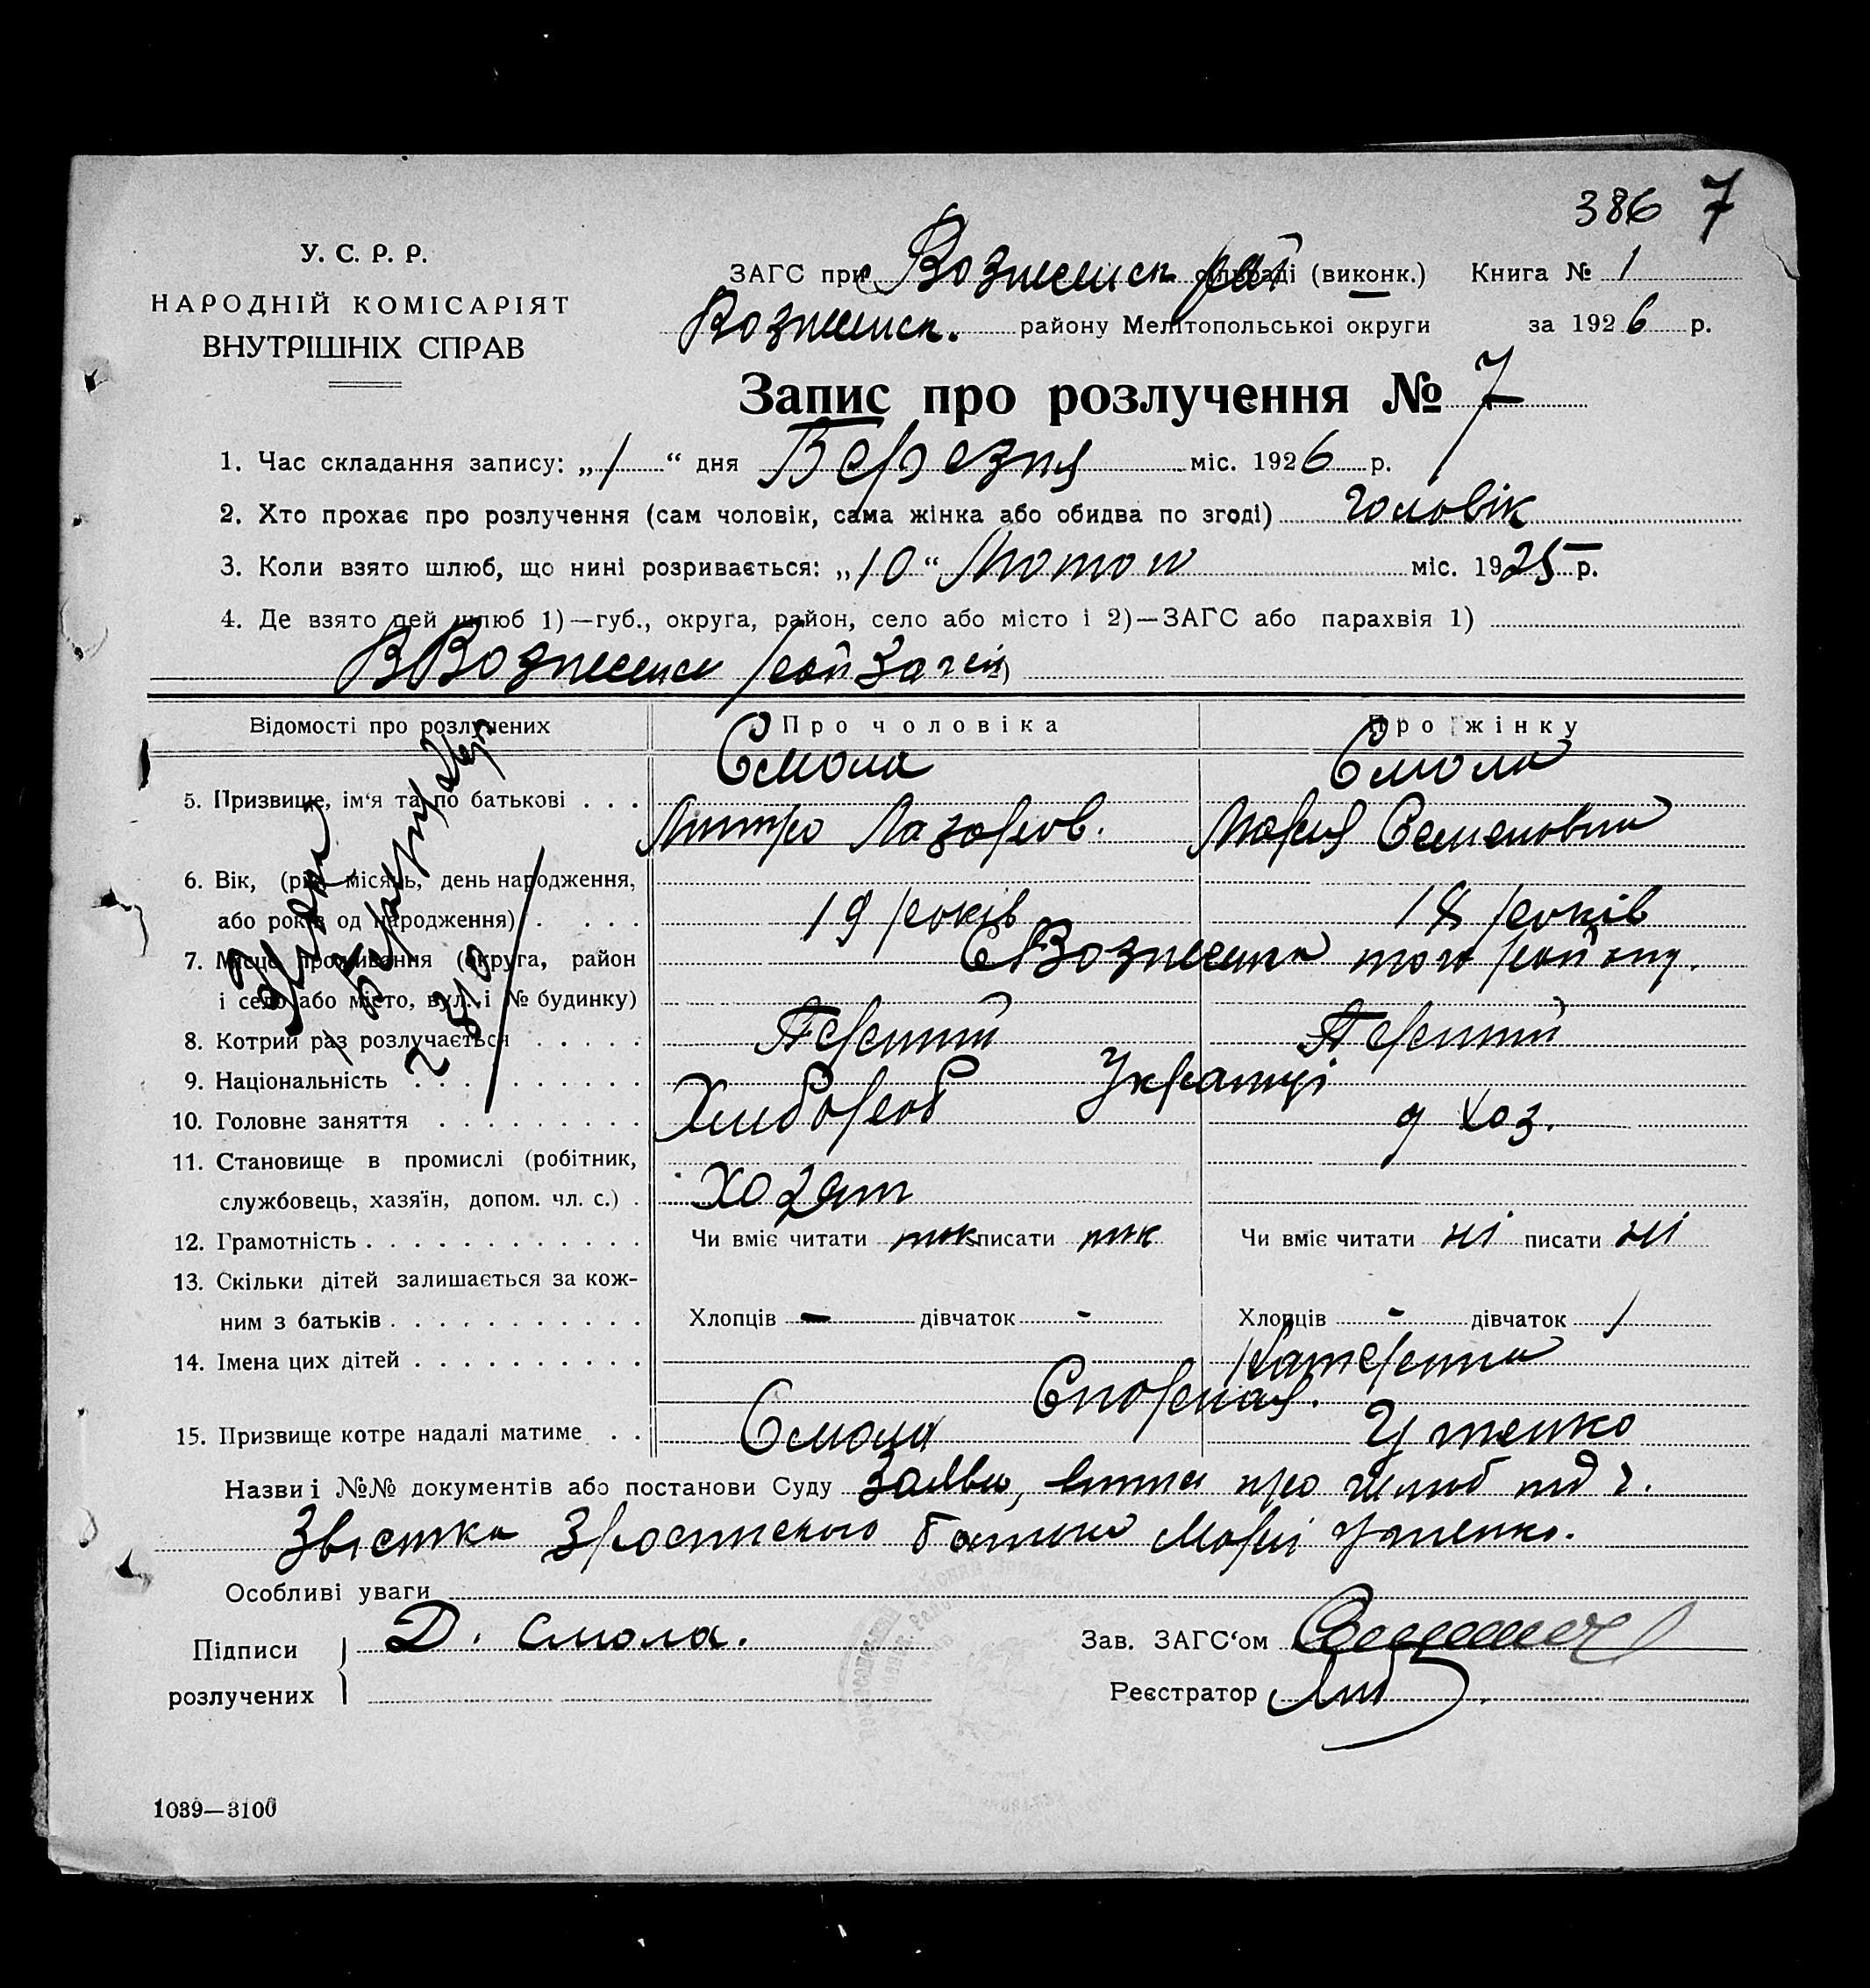 386 7
У. С. Р. Р.
НАРОДНІЙ КОМІСАРІЯТ
ВНУТРІШНІХ СПРАВ
ЗАГС при Вознесенск рай сільраді (виконк.) Книга № 1
Вознесенск. району Мелітопольської округи за 1926 р.
Запис про розлучення № 7
1. Час складання запису: „1“ дня Березня міс. 1926 р.
2. Хто прохає про розлучення (сам чоловік, сама жінка або обидва по згоді) чоловік
3. Коли взято шлюб, що нині розривається: „10“ Лютого міс. 1925 р.
4. Де взято цей шлюб 1)—губ., округа, район, село або місто і 2)—ЗАГС або парахвія 1)
В Вознесенск рай Загсі
Відомості про розлучених Про чоловіка Про жінку
Смола Смола
5. Призвище, ім‘я та по батькові . . .
Дмитро Лазаров. Мария Семеновна
6. Вік, (рік місяць, день народження,
або років од народження) 19 років 18 років
7. Місце проживання (округа, район
С Вознесенка того району.
і село або місто, вул. і № будинку)
8. Котрий раз розлучається Перший Перший
9. Національність Українці
10. Головне заняття Хлибороб д хоз.
11. Становище в промислі (робітник,
службовець, хазяїн, допом. чл. с.)
12. Грамотність Чи вміє читати так писати так Чи вміє читати ні писати ні
13. Скільки дітей залишається за кож-
ним з батьків Хлопців — дівчаток - Хлопців - дівчаток 1
14. Імена цих дітей Катерина
15. Призвище котре надалі матиме Смола Утенко
Назви і №№ документів або постанови Суду Заява, витяг про шлюб
Звістка батька Марії Утенко.
Особливі уваги
Підписи Д. Смола. Зав. ЗАГС‘ом
розлучених Реєстратор
1039—3100